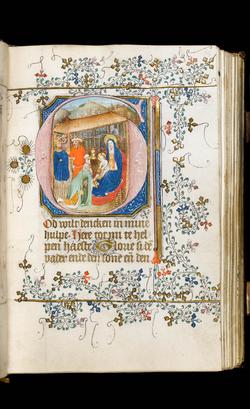 God wilt dencken in mine
hulpe. Here comt mi te hel
pen haeste. Glorie si dē
vader ende den sone en den